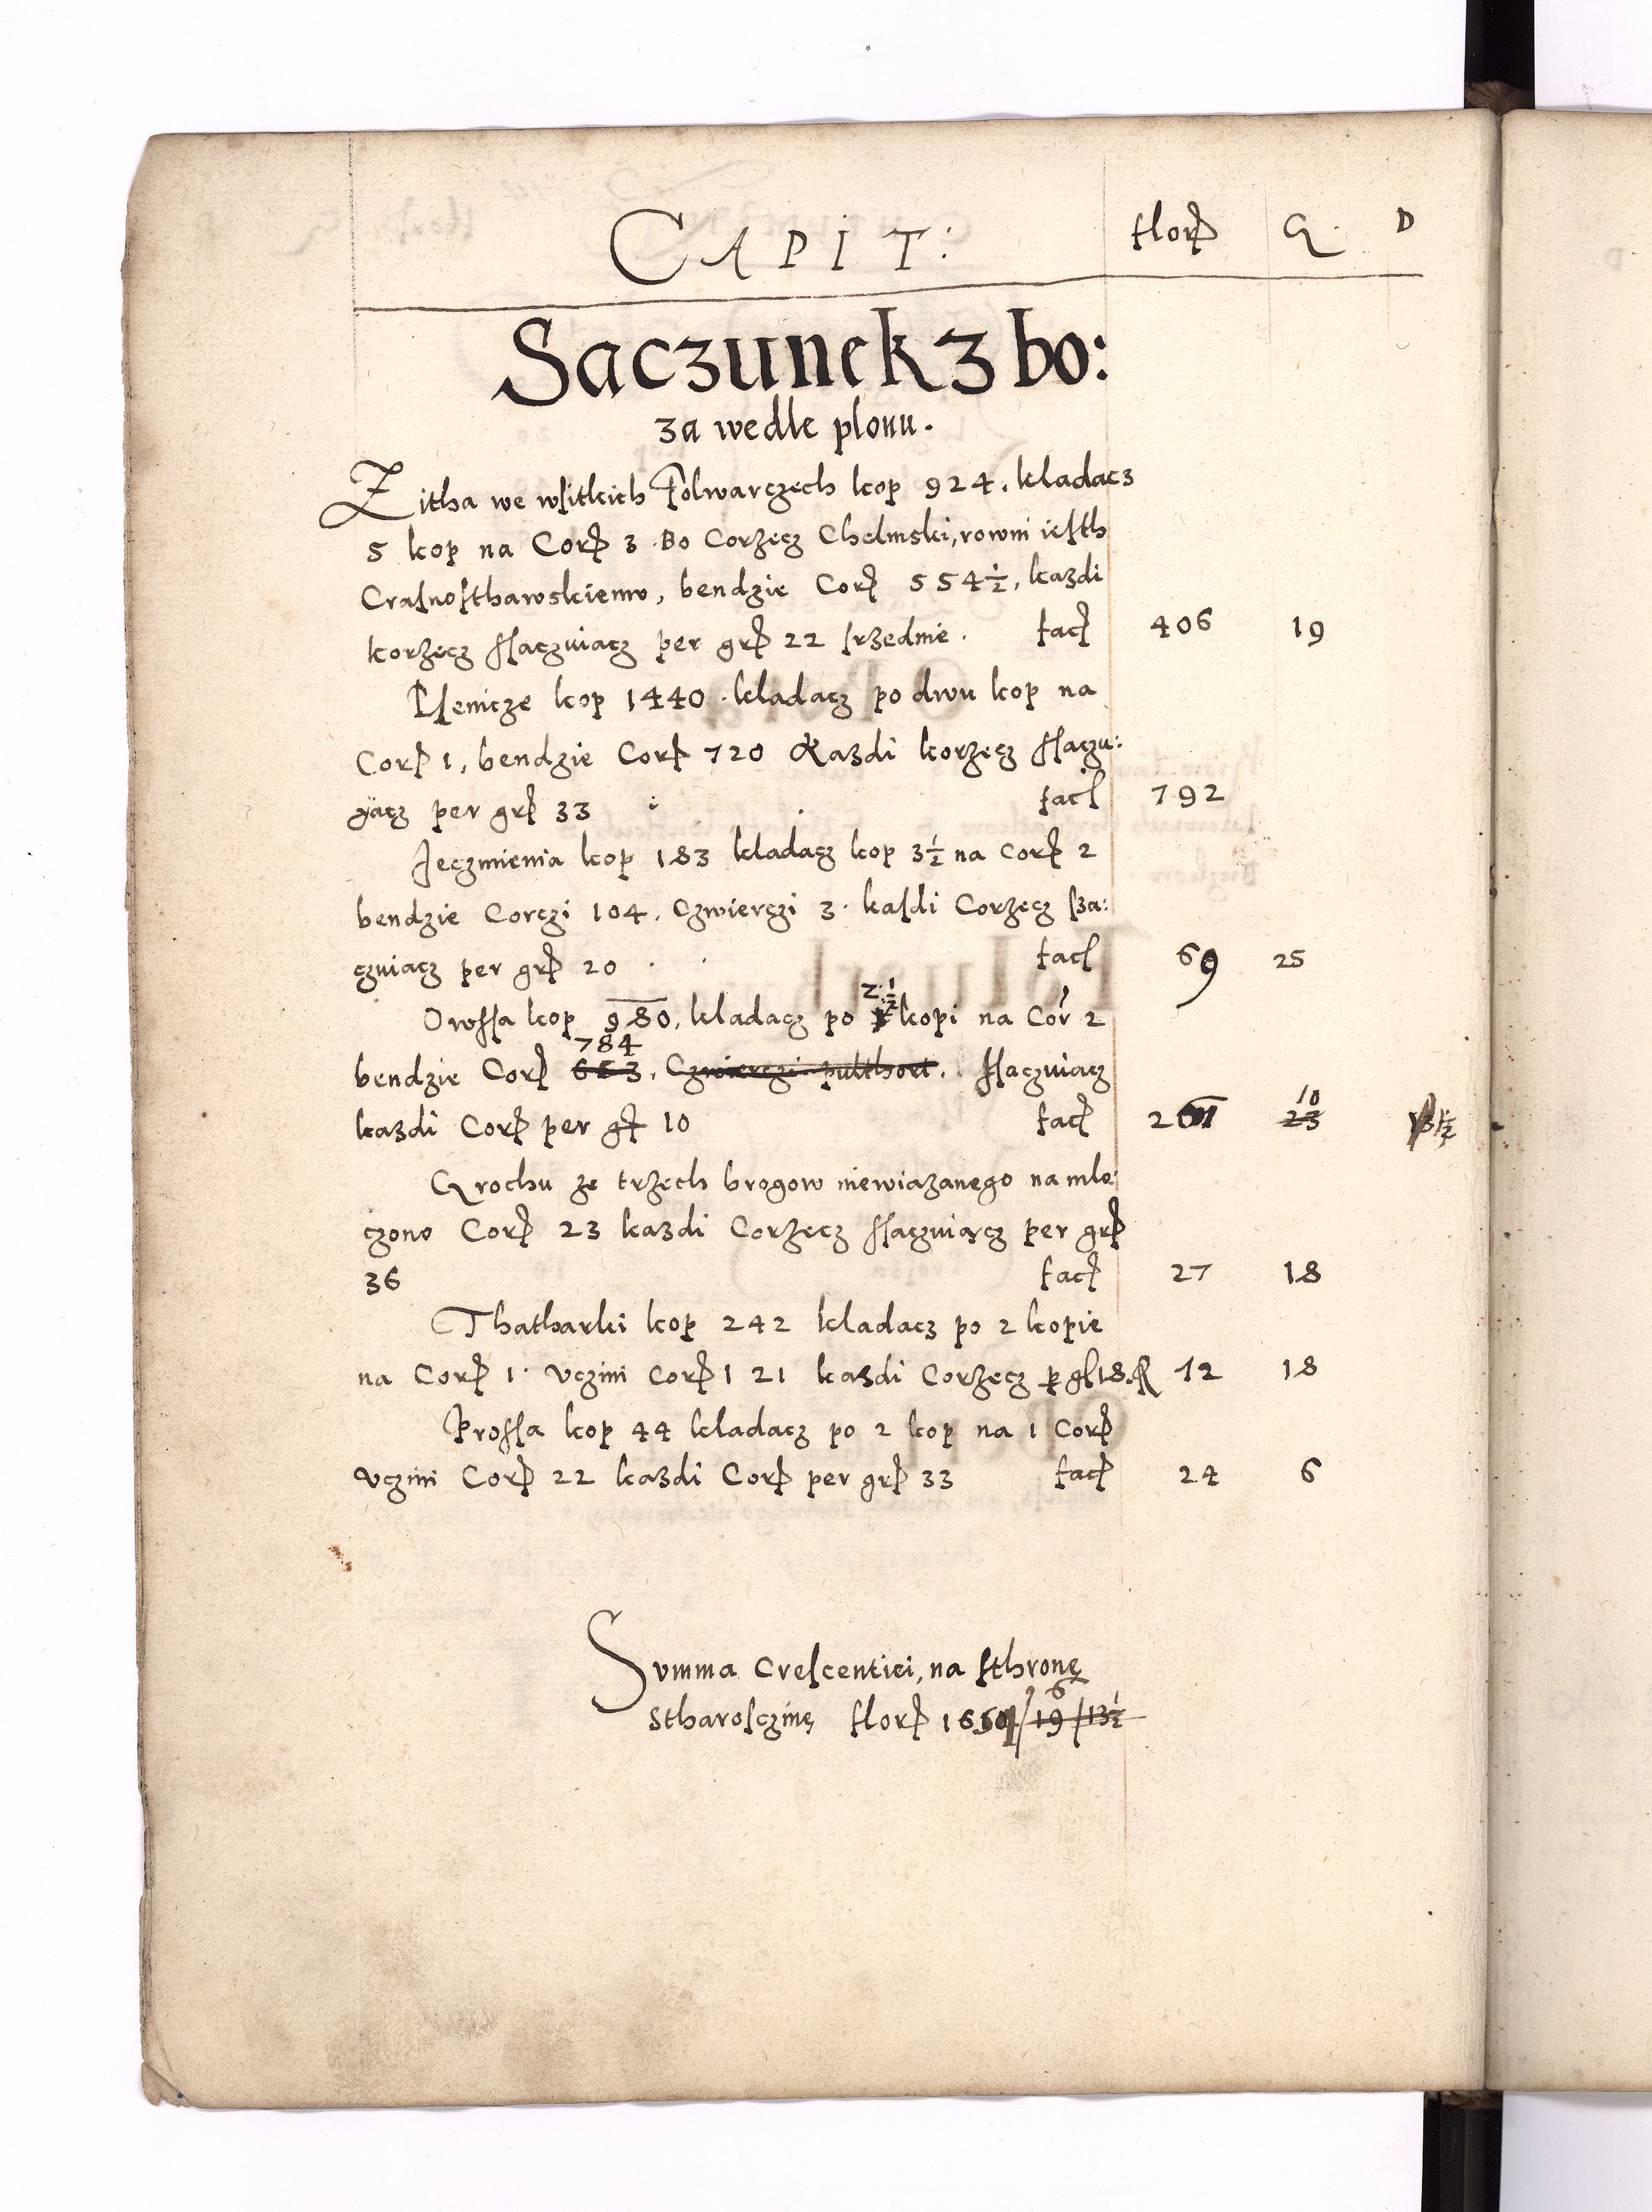 CAPIT: flor G. D
Saczunek z bo:
za wedle plonu.
Zitha we wsitkich Folwarczech kop 924. kladacz
5 kop na Cor 3. Bo Corzecz Chelmski, rowni iesth
Crasnosthawskiemv, bendzie Cor 554 1/2, kazdi
korzecz ssaczuiacz per gr 22 srzednie. fac 406 19
Psenicze kop 1440. kladacz po dwu kop na
Cor 1, bendzie Cor 720 Kazdi korzecz ssaczu:
yacz per gr 33 fac 792
Jeczmienia kop 183 kladacz kop 3 1/2 na Cor 2
bendzie Corczi 104. Czwierczi 3. kasdi Corzecz sza:
czuiacz per gr 20 fac 69 25
Owssa kop 980, kladacz po 2 1/2 kopi na Cor 2
784
bendzie Cor 653. Czwierczi pulthort. ssaczuiacz
kazdi Cor per g 10 fac 261 10 23
Grochu ze trzech brogow niewiazanego na mlo:
czono Cor 23 kazdi Corzecz ssaczuiącz per gr
36 fac 27 18
Thatharki kop 242 kladacz po 2 kopie
na Cor 1. vczini Cor 121 kazdi Corzecz p g 18. 12 18
Prossa kop 44 kladacz po 2 kop na 1 Cor
vczini Cor 22 kazdi Cor per gr 33 fac 24 6
Summa Crescentiei, na sthronę
6
Stharosczinę flor 19 13 1/2